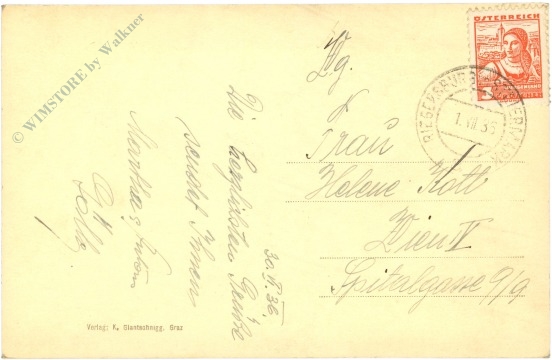 © WIMSTORE by Walkner
ÖSTERREICH
RIEGERSBURG
1. VII. 36
Frau
Helene Kott
Wien V
Spitalgasse 9/9
30. VI. 36.
Die herzlichsten Grüße
sendet Ihnen
Verlag: K. Glantschnigg, Graz